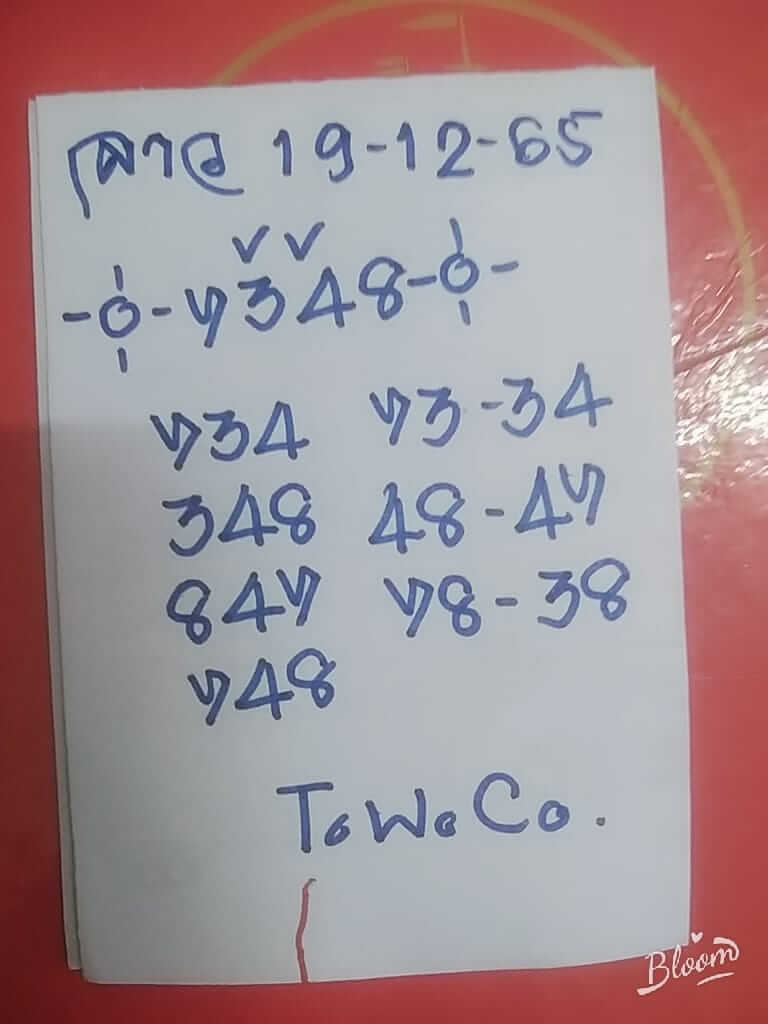 ลาว 19-12-65
-0-7348-0-
734 73-34
348 48-47
847 78-38
748
ToWoCo.
Bloom